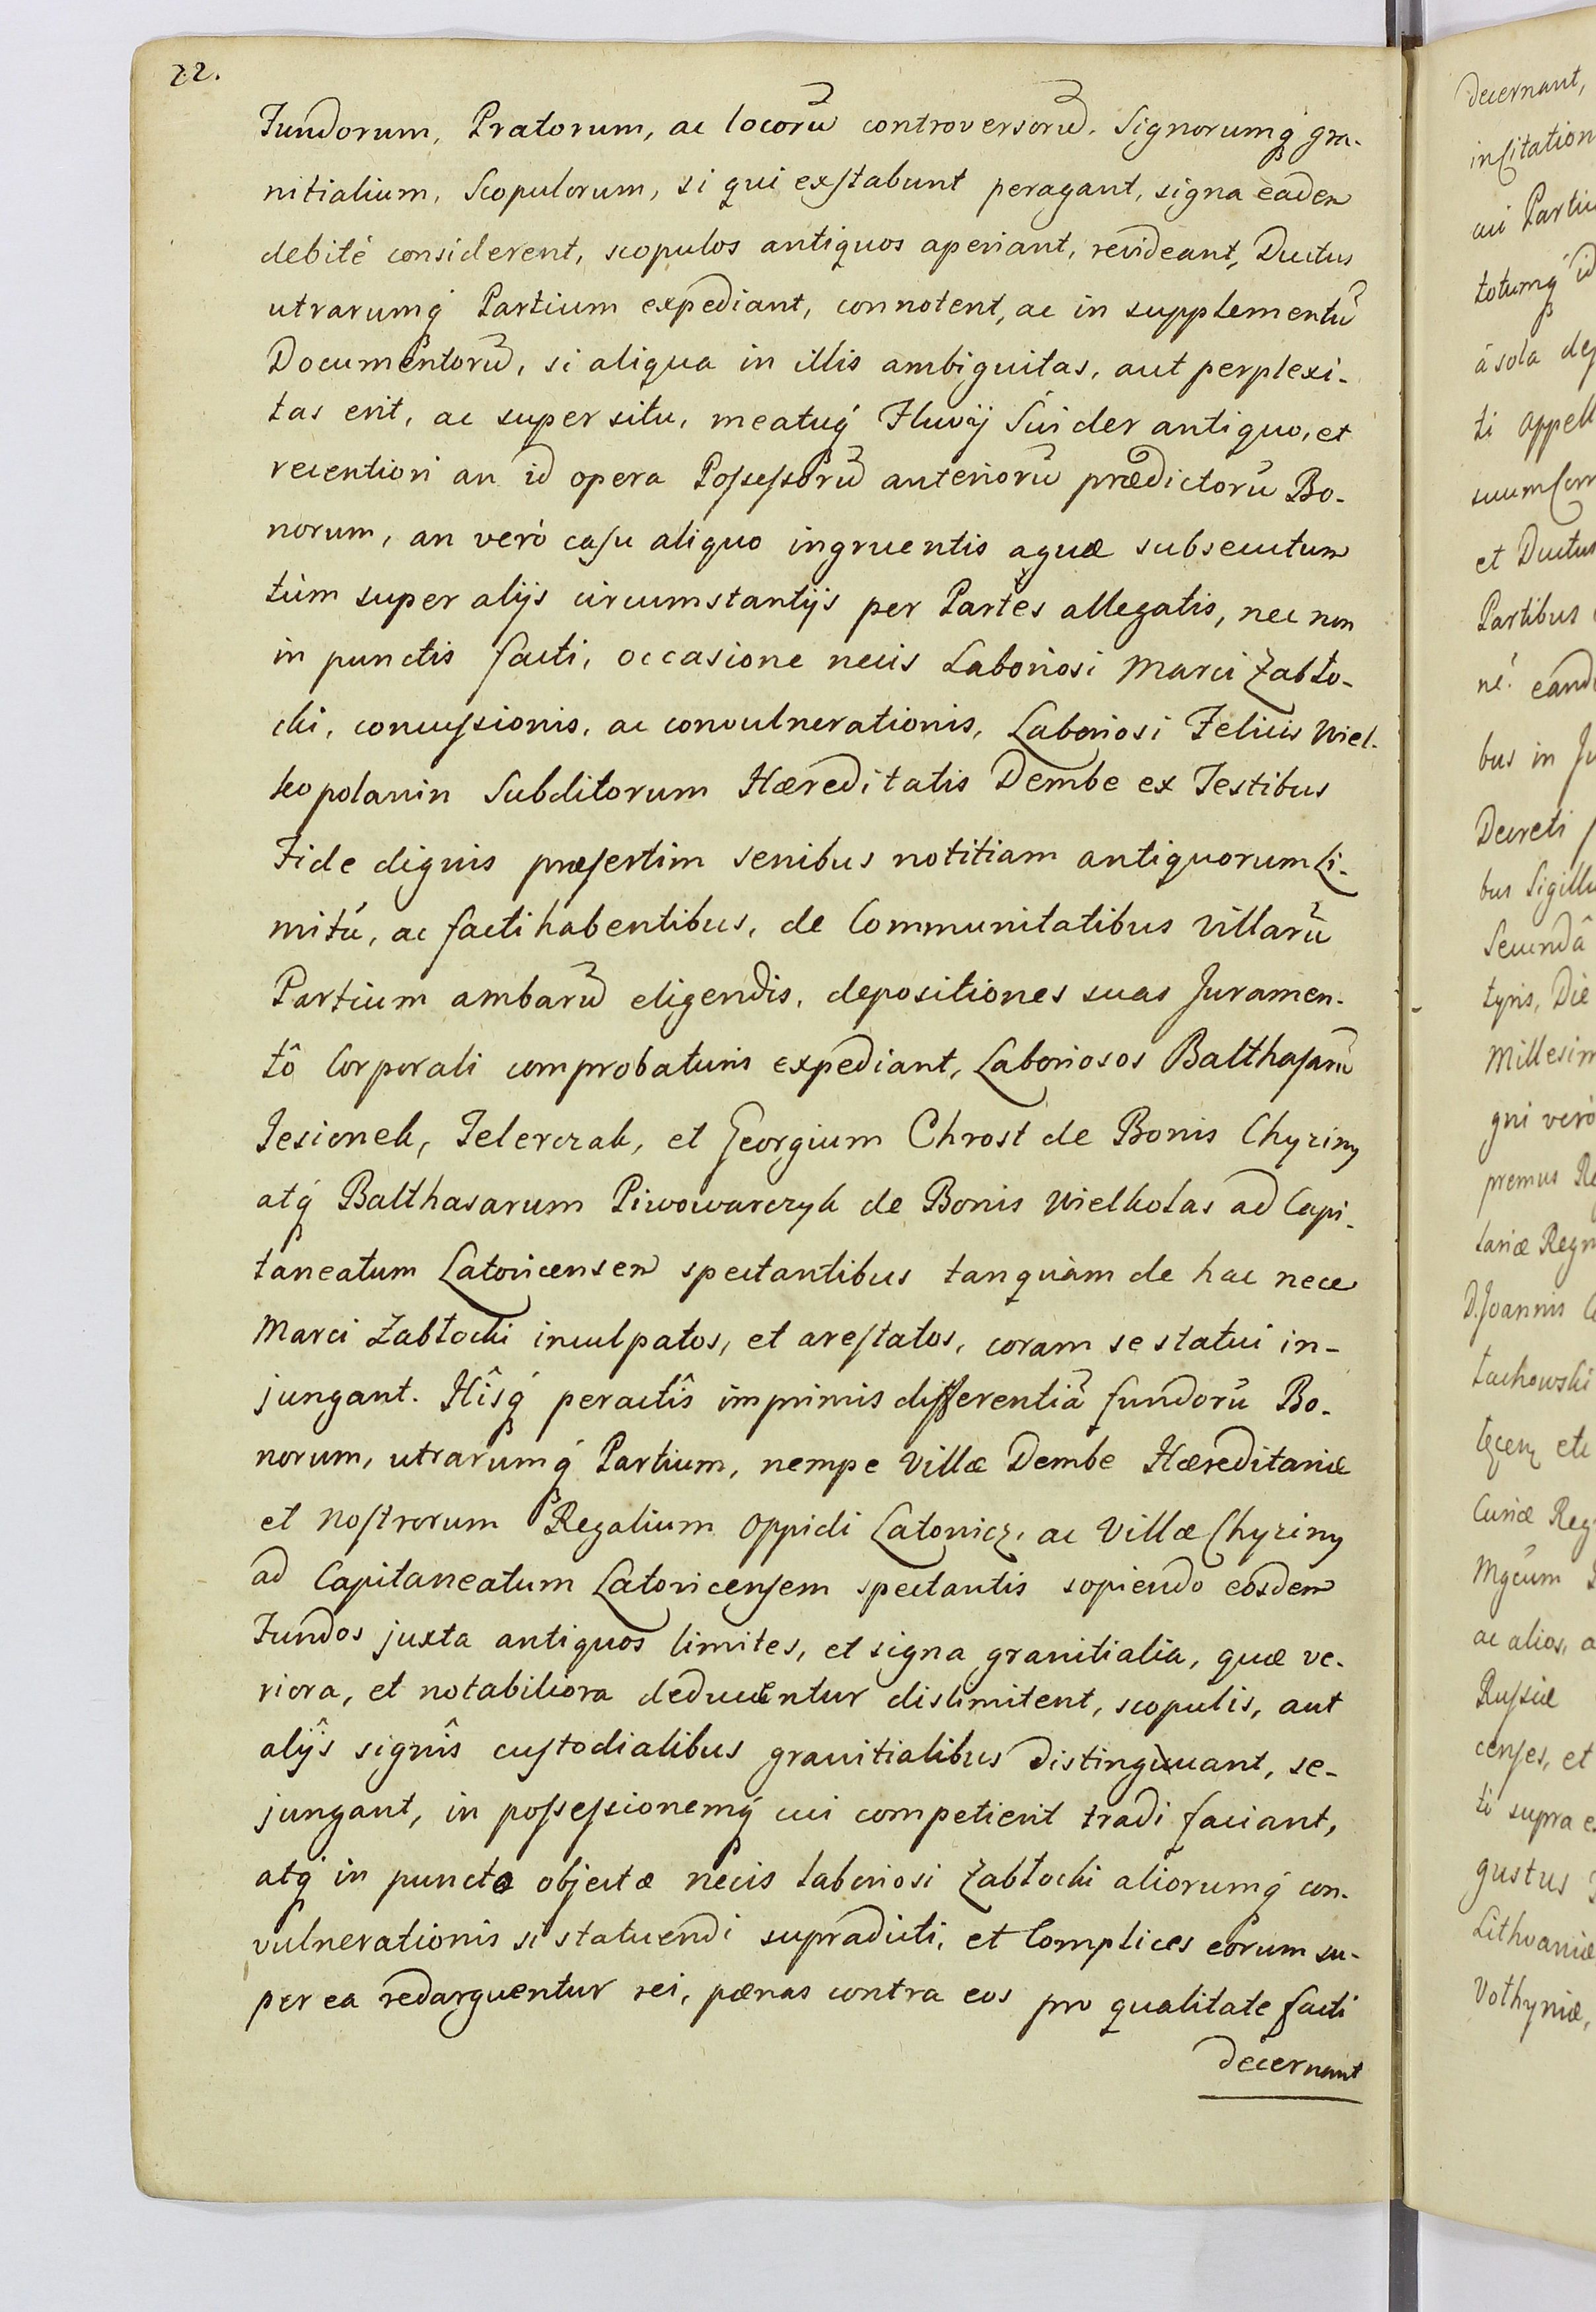 22.
Fundorum, Pratorum, ac locorũ controversorũ, Signorumq́ gra-
nitialium, Scopulorum, si qui exstabunt peragant, signa eadem
debité considerent, scopulos antiquos aperiant, revideant, Ductus
utrarumq́ Partium expediant, connotent, ac in supplementũ
Documentorũ, si aliqua in illis ambiguitas, aut perplexi-
tas erit, ac super situ, meatuq́ Fluvij Suider antiquo, et
recentiori an id opera Possessorũ anteriorũ prædictorũ Bo-
norum, an verò casu aliquo ingruentis aquæ subsecutum
tùm super alijs circumstantijs per Partes allegatis, nec non
in punctis facti, occasione necis Laboriosi Marci Zabło-
cki, concussionis, ac convulnerationis, Laboriosi Felicis Wiel-
kopolanin Subditorum Hæreditatis Dembe ex Testibus
Fide dignis præsertim senibus notitiam antiquorum Li-
mitũ, ac facti habentibus, de Communitatibus Villarũ
Partium ambarũ eligendis, depositiones suas Juramen-
tô Corporali comprobaturis expediant, Laboriosos Balthasarũ
Jesionek, Jelerczak, et Georgium Chrost de Bonis Chyziny
atq́ Balthasarum Piwowarczyk de Bonis Wielkolas ad Capi-
taneatum Latovicensem spectantibus tanquàm de hac nece
Marci Zabłocki inculpatos, et arestatos, coram se statui in-
jungant. Hîsq́ peractîs imprimis differentiã fundorũ Bo-
norum, utrarumq́ Partium, nempe Villæ Dembe Hæreditariæ
et Nostrorum Regalium Oppidi Latovicz, ac Villæ Chyziny
ad Capitaneatum Latovicensem spectantis sopiendo eosdem
Fundos juxta antiquos limites, et signa granitialia, quæ ve-
riora, et notabiliora deducentur dislimitent, scopulis, aut
alijs signîs custodialibus granitialibus distinguant, se-
jungant, in possessionemq́ cui competierit tradi faciant,
atq́ in puncto objectæ necis laboriosi Zabłocki aliorumq́ con-
vulnerationis si statuendi supradicti, et Complices eorum su-
per ea redarguentur rei, pænas contra eos pro qualitate facti
decernant
decernant,
totumq́ id
à sola
ti
et Ductus
Partibus
bus in
Decreti
Secundâ
Die
gni verò
premus
tariæ
D. Joannis
etc
Curiæ
ac alios,
Russiæ
et
ti supra
gustus
Lithvaniæ